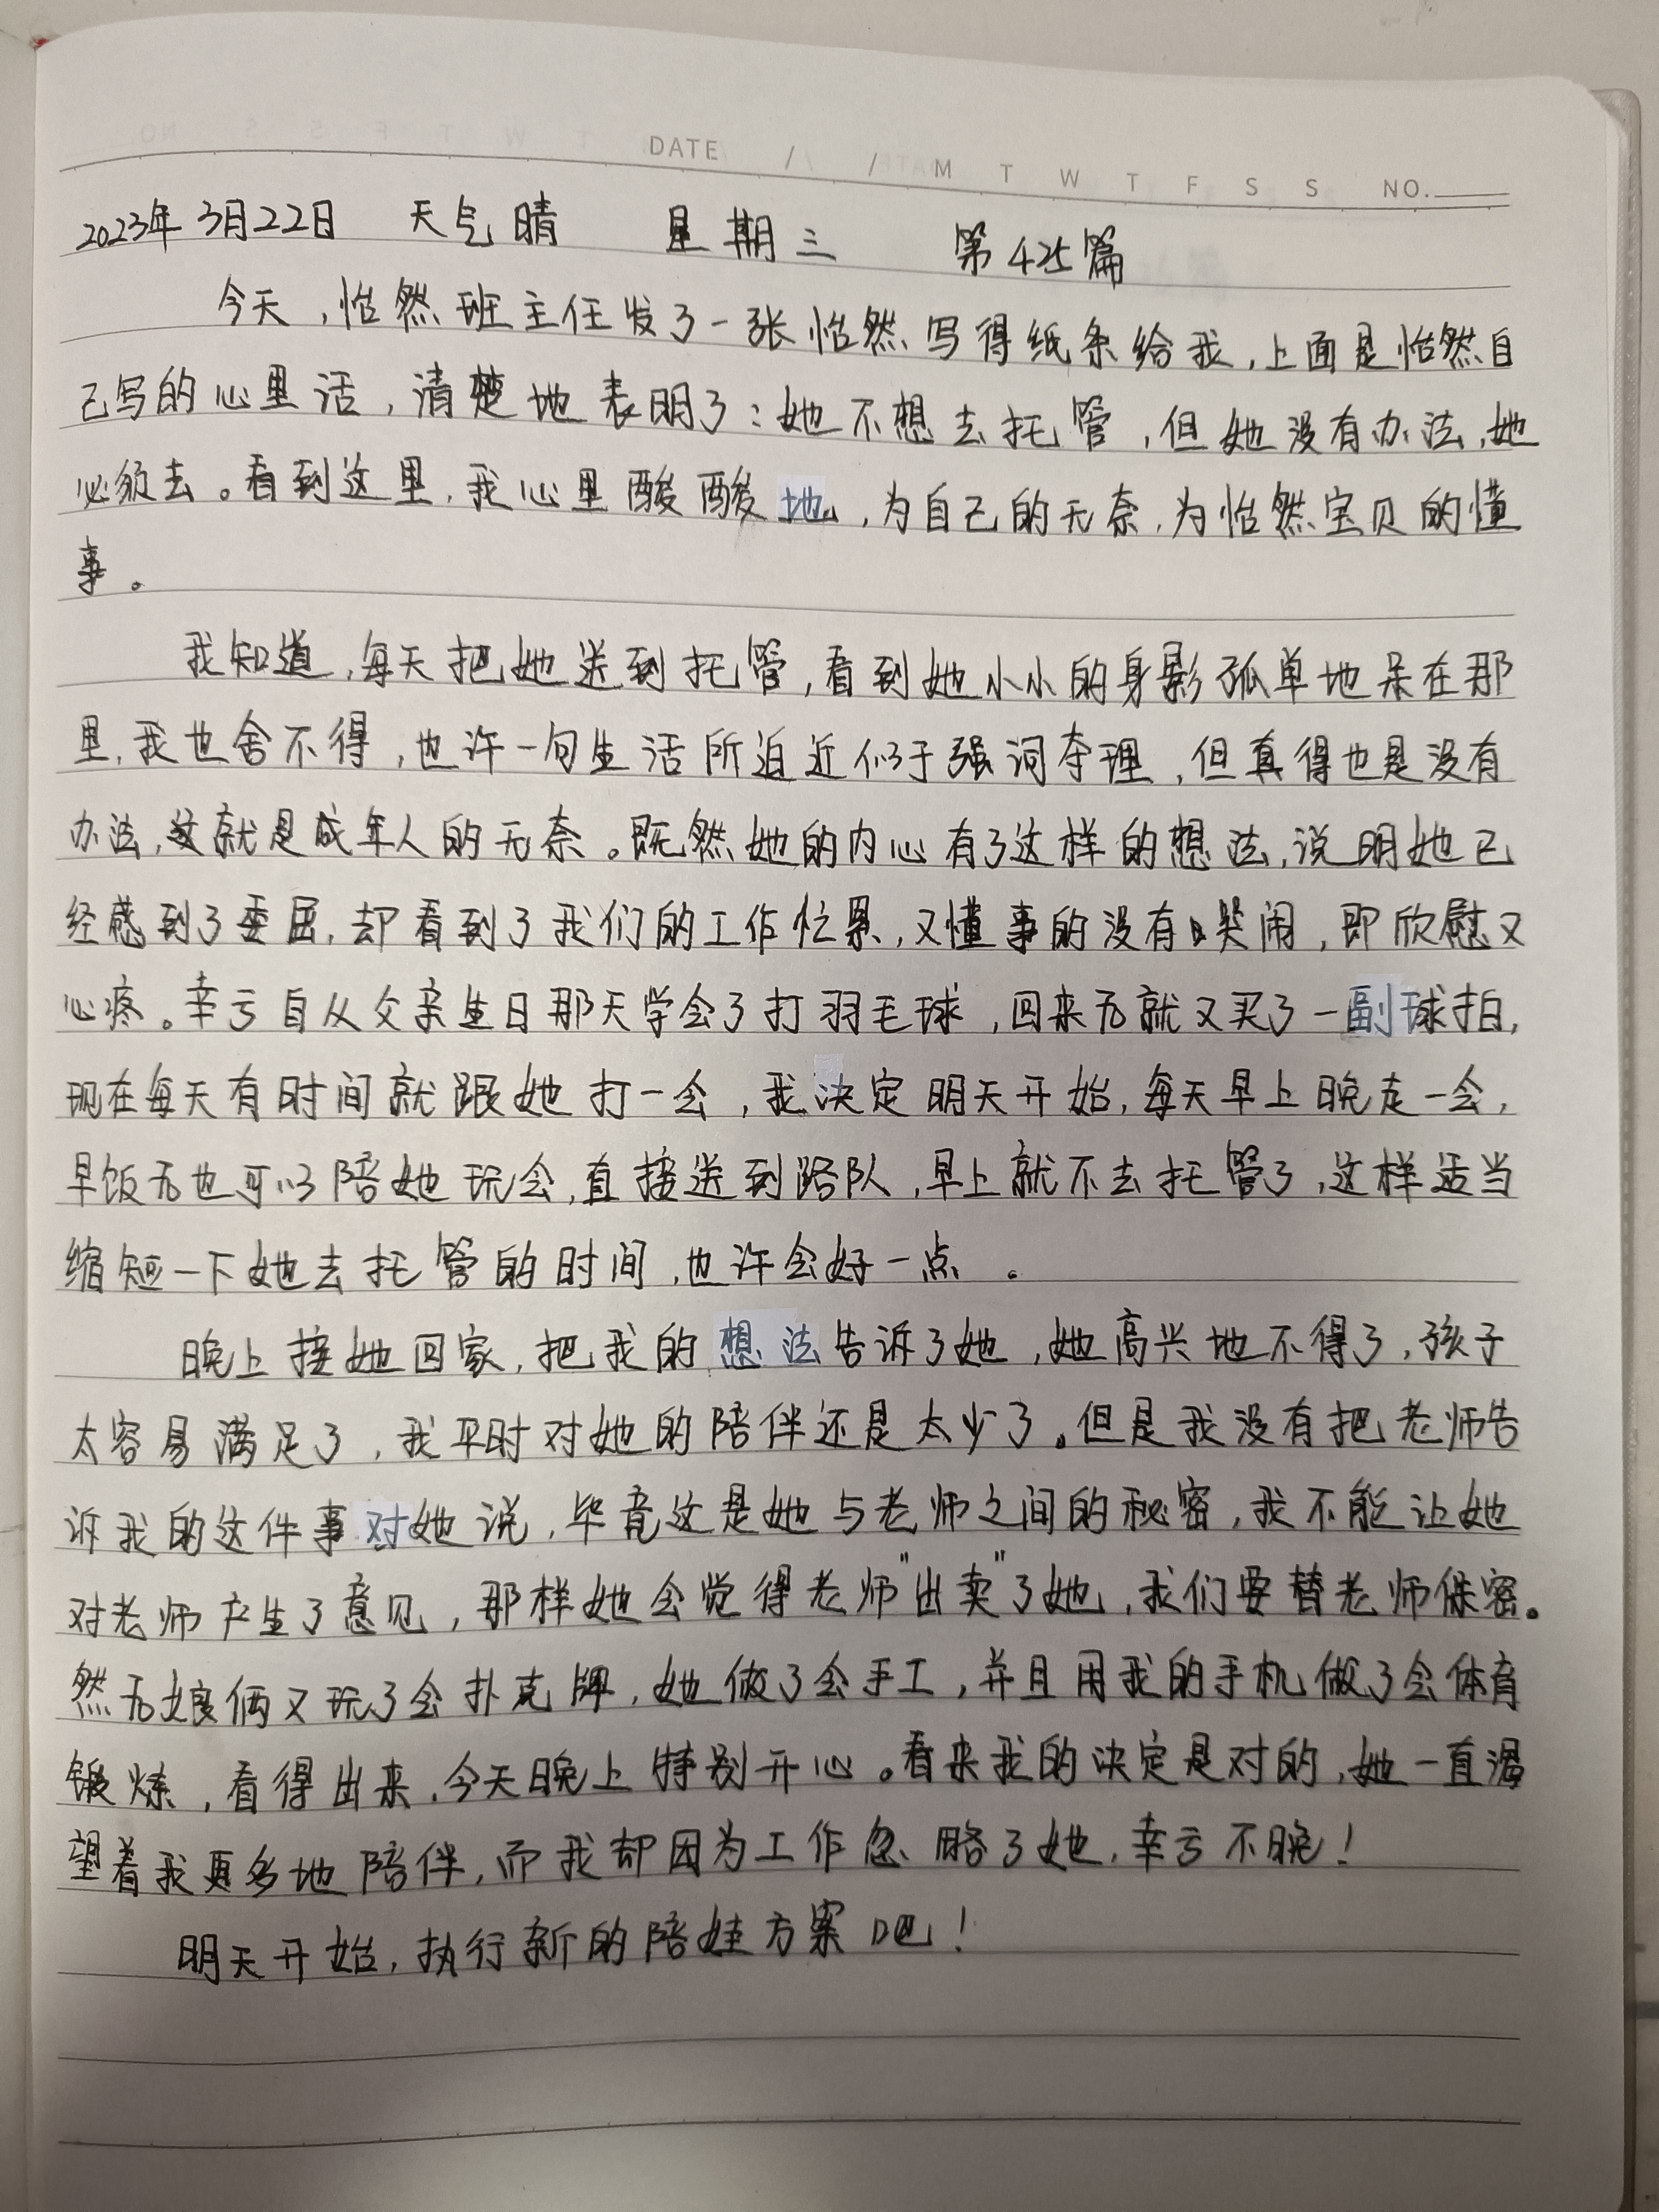 DATE / / M T W T F S S NO.
2023年3月22日 天气晴 星期三 第425篇
今天，怡然班主任发了一张怡然写得纸条给我，上面是怡然自
己写的心里话，清楚地表明了：她不想去托管，但她没有办法，她
必须去。看到这里，我心里酸酸地，为自己的无奈，为怡然宝贝的懂
事。
我知道，每天把她送到托管，看到她小小的身影孤单地呆在那
里，我也舍不得，也许一句生活所迫近似于强词夺理，但真得也是没有
办法，这就是成年人的无奈。既然她的内心有了这样的想法，说明她已
经感到了委屈，却看到了我们的工作忙累，又懂事的没有哭闹，即欣慰又
心疼。幸亏自从父亲生日那天学会了打羽毛球，回来后就又买了一副球拍，
现在每天有时间就跟她打一会，我决定明天开始，每天早上晚走一会，
早饭后也可以陪她玩会，直接送到路队，早上就不去托管了，这样适当
缩短一下她去托管的时间，也许会好一点。
晚上接她回家，把我的想法告诉了她，她高兴地不得了，孩子
太容易满足了，我平时对她的陪伴还是太少了。但是我没有把老师告
诉我的这件事对她说，毕竟这是她与老师之间的秘密，我不能让她
对老师产生了意见，那样她会觉得老师"出卖"了她，我们要替老师保密。
然后娘俩又玩了会扑克牌，她做了会手工，并且用我的手机做了会体育
锻炼，看得出来，今天晚上特别开心。看来我的决定是对的，她一直渴
望着我更多地陪伴，而我却因为工作忽略了她，幸亏不晚！
明天开始，执行新的陪娃方案吧！